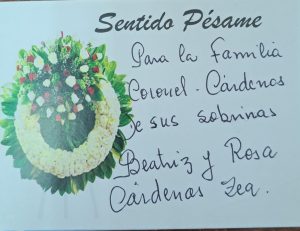 Sentido Pésame
Para la Familia
Coronel - Cárdenas
de sus sobrinas
Beatriz y Rosa
Cárdenas Zea.